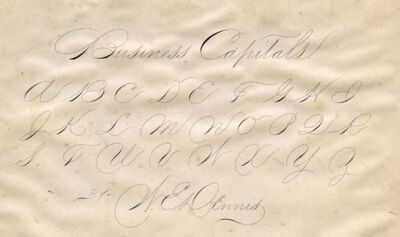 Business Capitals
A B C D E F G H I
J K L M N O P Q R
S T U V W X Y Z
BY